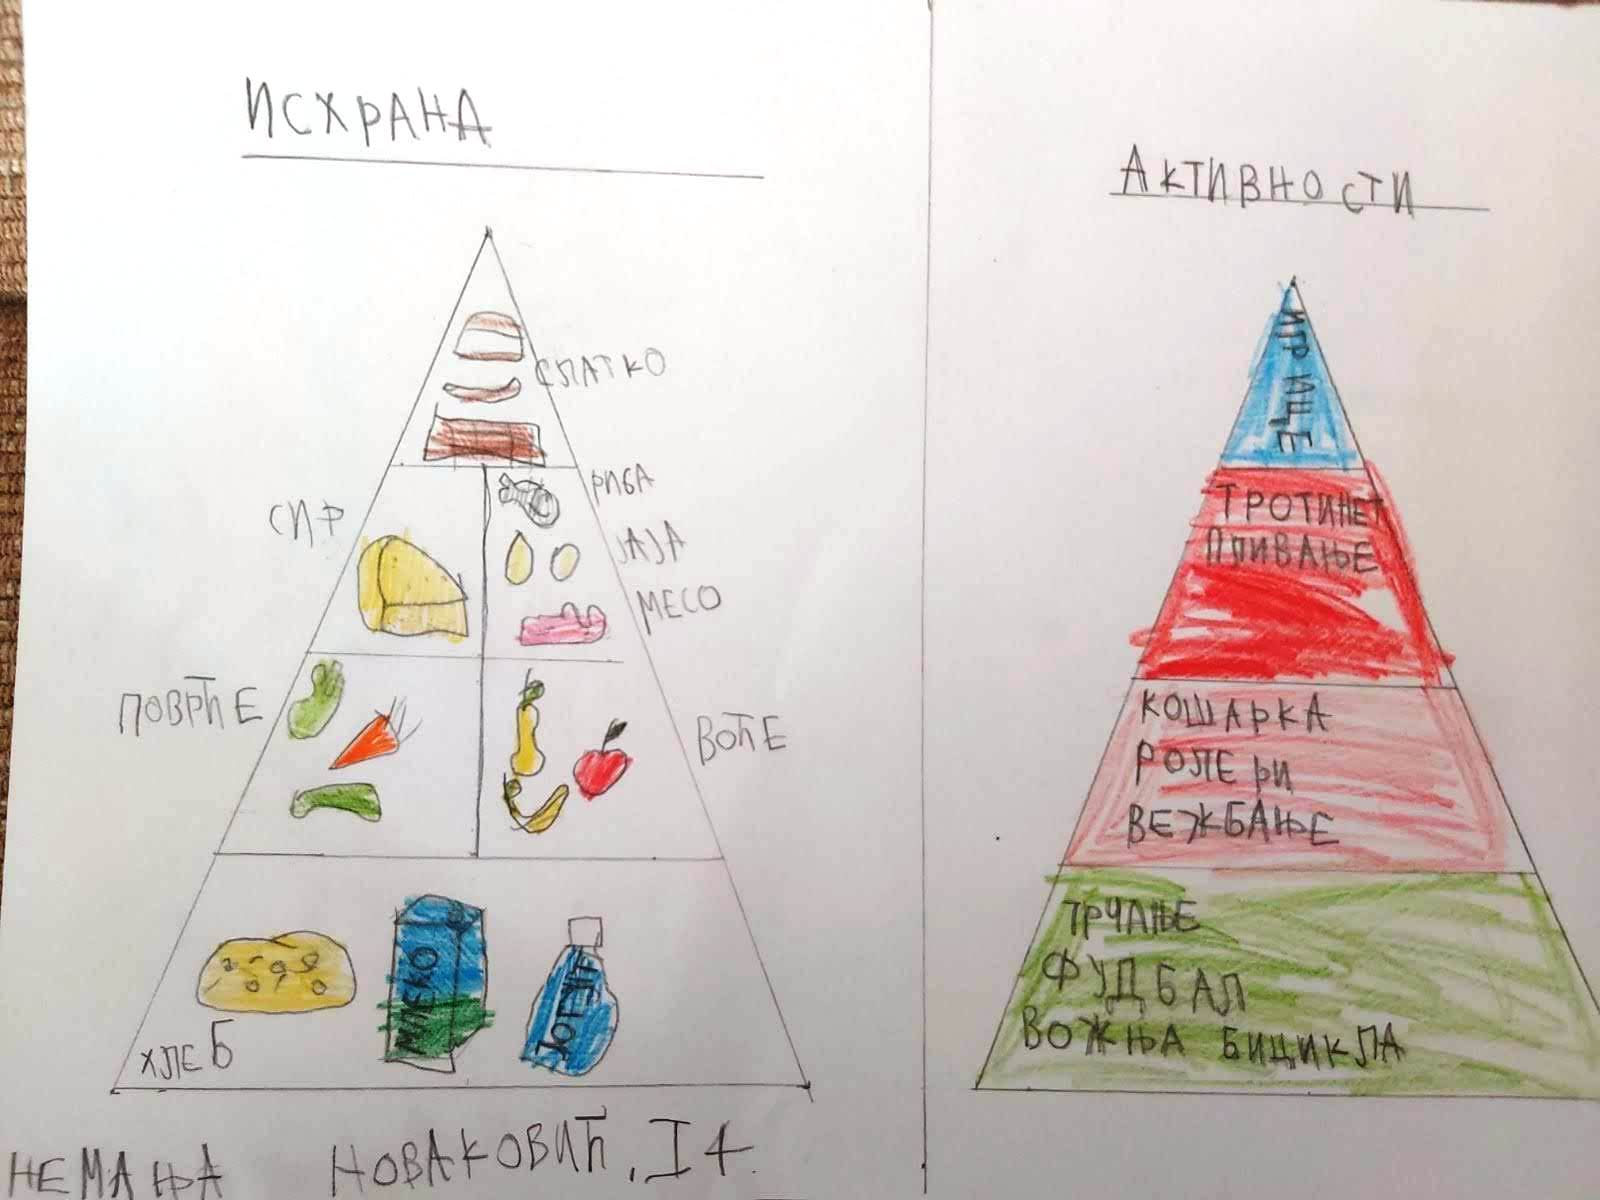 ИСХРАНА
СЛАТКО
СИР
РИБА
ЈАЈА
МЕСО
ПОВРЋЕ
ВОЋЕ
ХЛЕБ
МЛЕКО
ЈОГУРТ
НЕМАЊА НОВАКОВИЋ, I 4.
АКТИВНОСТИ
ИГРИЩЕ
ТРОТИНЕТ
ПЛИВАЊЕ
КОШАРКА
РОЛЕРИ
ВЕЖБАЊЕ
ТРЧАЊЕ
ФУДБАЛ
ВОЖЊА БИЦИКЛА